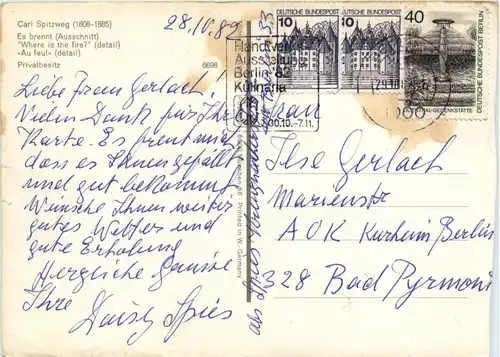 Carl Spitzweg (1808-1885)
Es brennt (Ausschnitt)
"Where is the fire?" (detail)
«Au feu!» (détail)
Privatbesitz
6698
28.10.82
Liebe Frau Gerlach,
Vielen Dank für Ihre
Karte. Es freut mich
dass es Ihnen gefällt
und gut bekommt.
Wünsche Ihnen weiter
gutes Wetter und
gute Erholung
Herzliche Grüsse
Ihre
Daisy Spies
Printed in W. Germany
abs Spies
33
10
DEUTSCHE BUNDESPOST BERLIN
10
DEUTSCHE BUNDESPOST BERLIN
40
DEUTSCHE BUNDESPOST BERLIN
Handwerk
Ausstellung
Berlin '82
Kulinaria
30.10.-7.11.
Frau
Ilse Gerlach
Marienstr
AOK Kurheim Berlin
328 Bad Pyrmont